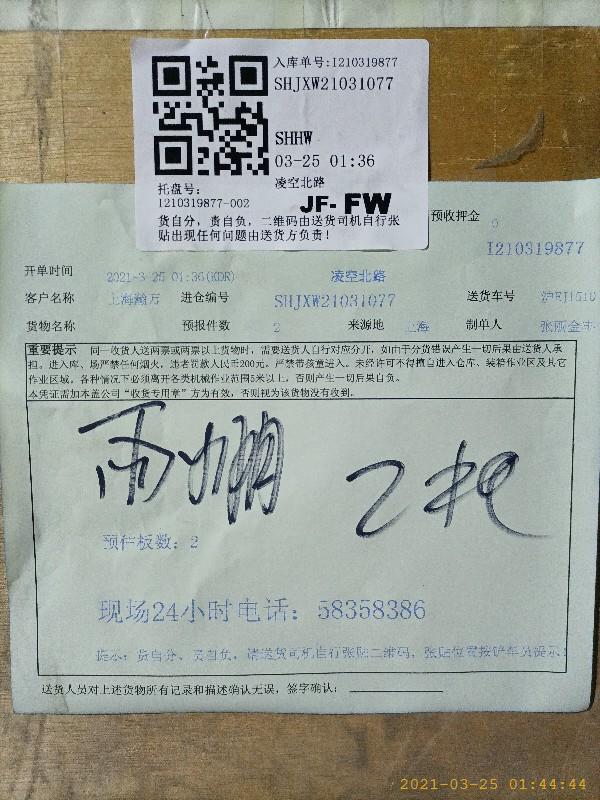 入库单号:I210319877
SHJXW21031077
SHHW
03-25 01:36
凌空北路
托盘号:
1210319877-002
JF- FW
货自分，责自负，二维码由送货司机自行张
贴出现任何问题由送货方负责！
预收押金 0
I210319877
开单时间 2021-3-25 01:36(KDR) 凌空北路
客户名称 上海瀚万 进仓编号 SHJXW21031077 送货车号
货物名称 预报件数 2 来源地 上海 制单人
重要提示 同一收货人送两票或两票以上货物时，需要送货人自行对应分开，如由于分货错误产生一切后果由送货人承
担。进入库、场严禁任何烟火，违者罚款人民币200元。严禁带孩童进入。未经许可不得擅自进入仓库、装箱作业区及其它
作业区域，各种情况下必须离开各类机械作业范围5米以上，否则产生一切后果自负。
本凭证需加本盖公司“收货专用章”方为有效，否则视为该货物没有收到。
雨棚 2托
预件板数：2
现场24小时电话：58358386
提示：货自分、责自负，请送货司机自行张贴二维码，张贴位置按铲车员提示
送货人员对上述货物所有记录和描述确认无误，签字确认：
2021-03-25 01:44:44